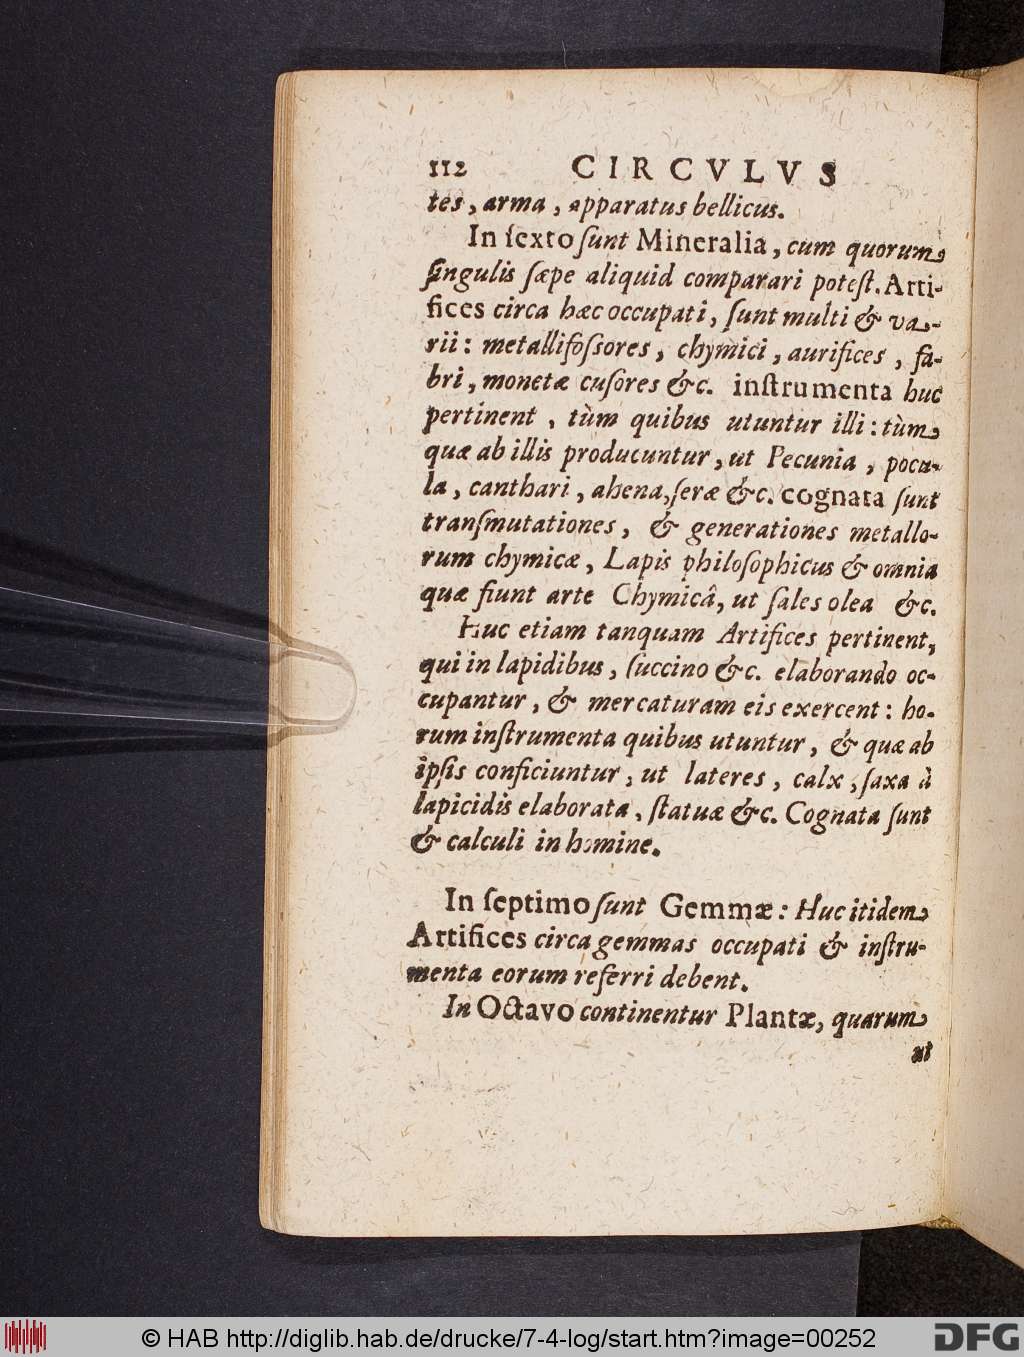 112 CIRCVLVS
tes, arma, apparatus bellicus.
In ſexto ſunt Mineralia, cum quorum
ſingulis ſæpe aliquid comparari poteſt. Arti-
fices circa hæc occupati, ſunt multi & va-
rii: metallifoſsores, chymici, aurifices, fa-
bri, monetæ cuſores &c. inſtrumenta huc
pertinent, tùm quibus utuntur illi: tùm
quæ ab illis producuntur, ut Pecunia, pocu-
la, canthari, ahena, ſeræ &c. cognata ſunt
tranſmutationes, & generationes metallo-
rum chymicæ, Lapis philoſophicus & omnia
quæ fiunt arte Chymicâ, ut ſales olea &c.
Huc etiam tanquam Artifices pertinent,
qui in lapidibus, ſuccino &c. elaborando oc-
cupantur, & mercaturam eis exercent: ho-
rum inſtrumenta quibus utuntur, & quæ ab
ipſis conficiuntur, ut lateres, calx, ſaxa à
lapicidis elaborata, ſtatuæ &c. Cognata ſunt
& calculi in homine.
In ſeptimo ſunt Gemmæ: Huc itidem
Artifices circa gemmas occupati & inſtru-
menta eorum referri debent.
In Octavo continentur Plantæ, quarum
ut
© HAB http://diglib.hab.de/drucke/7-4-log/start.htm?image=00252
DFG